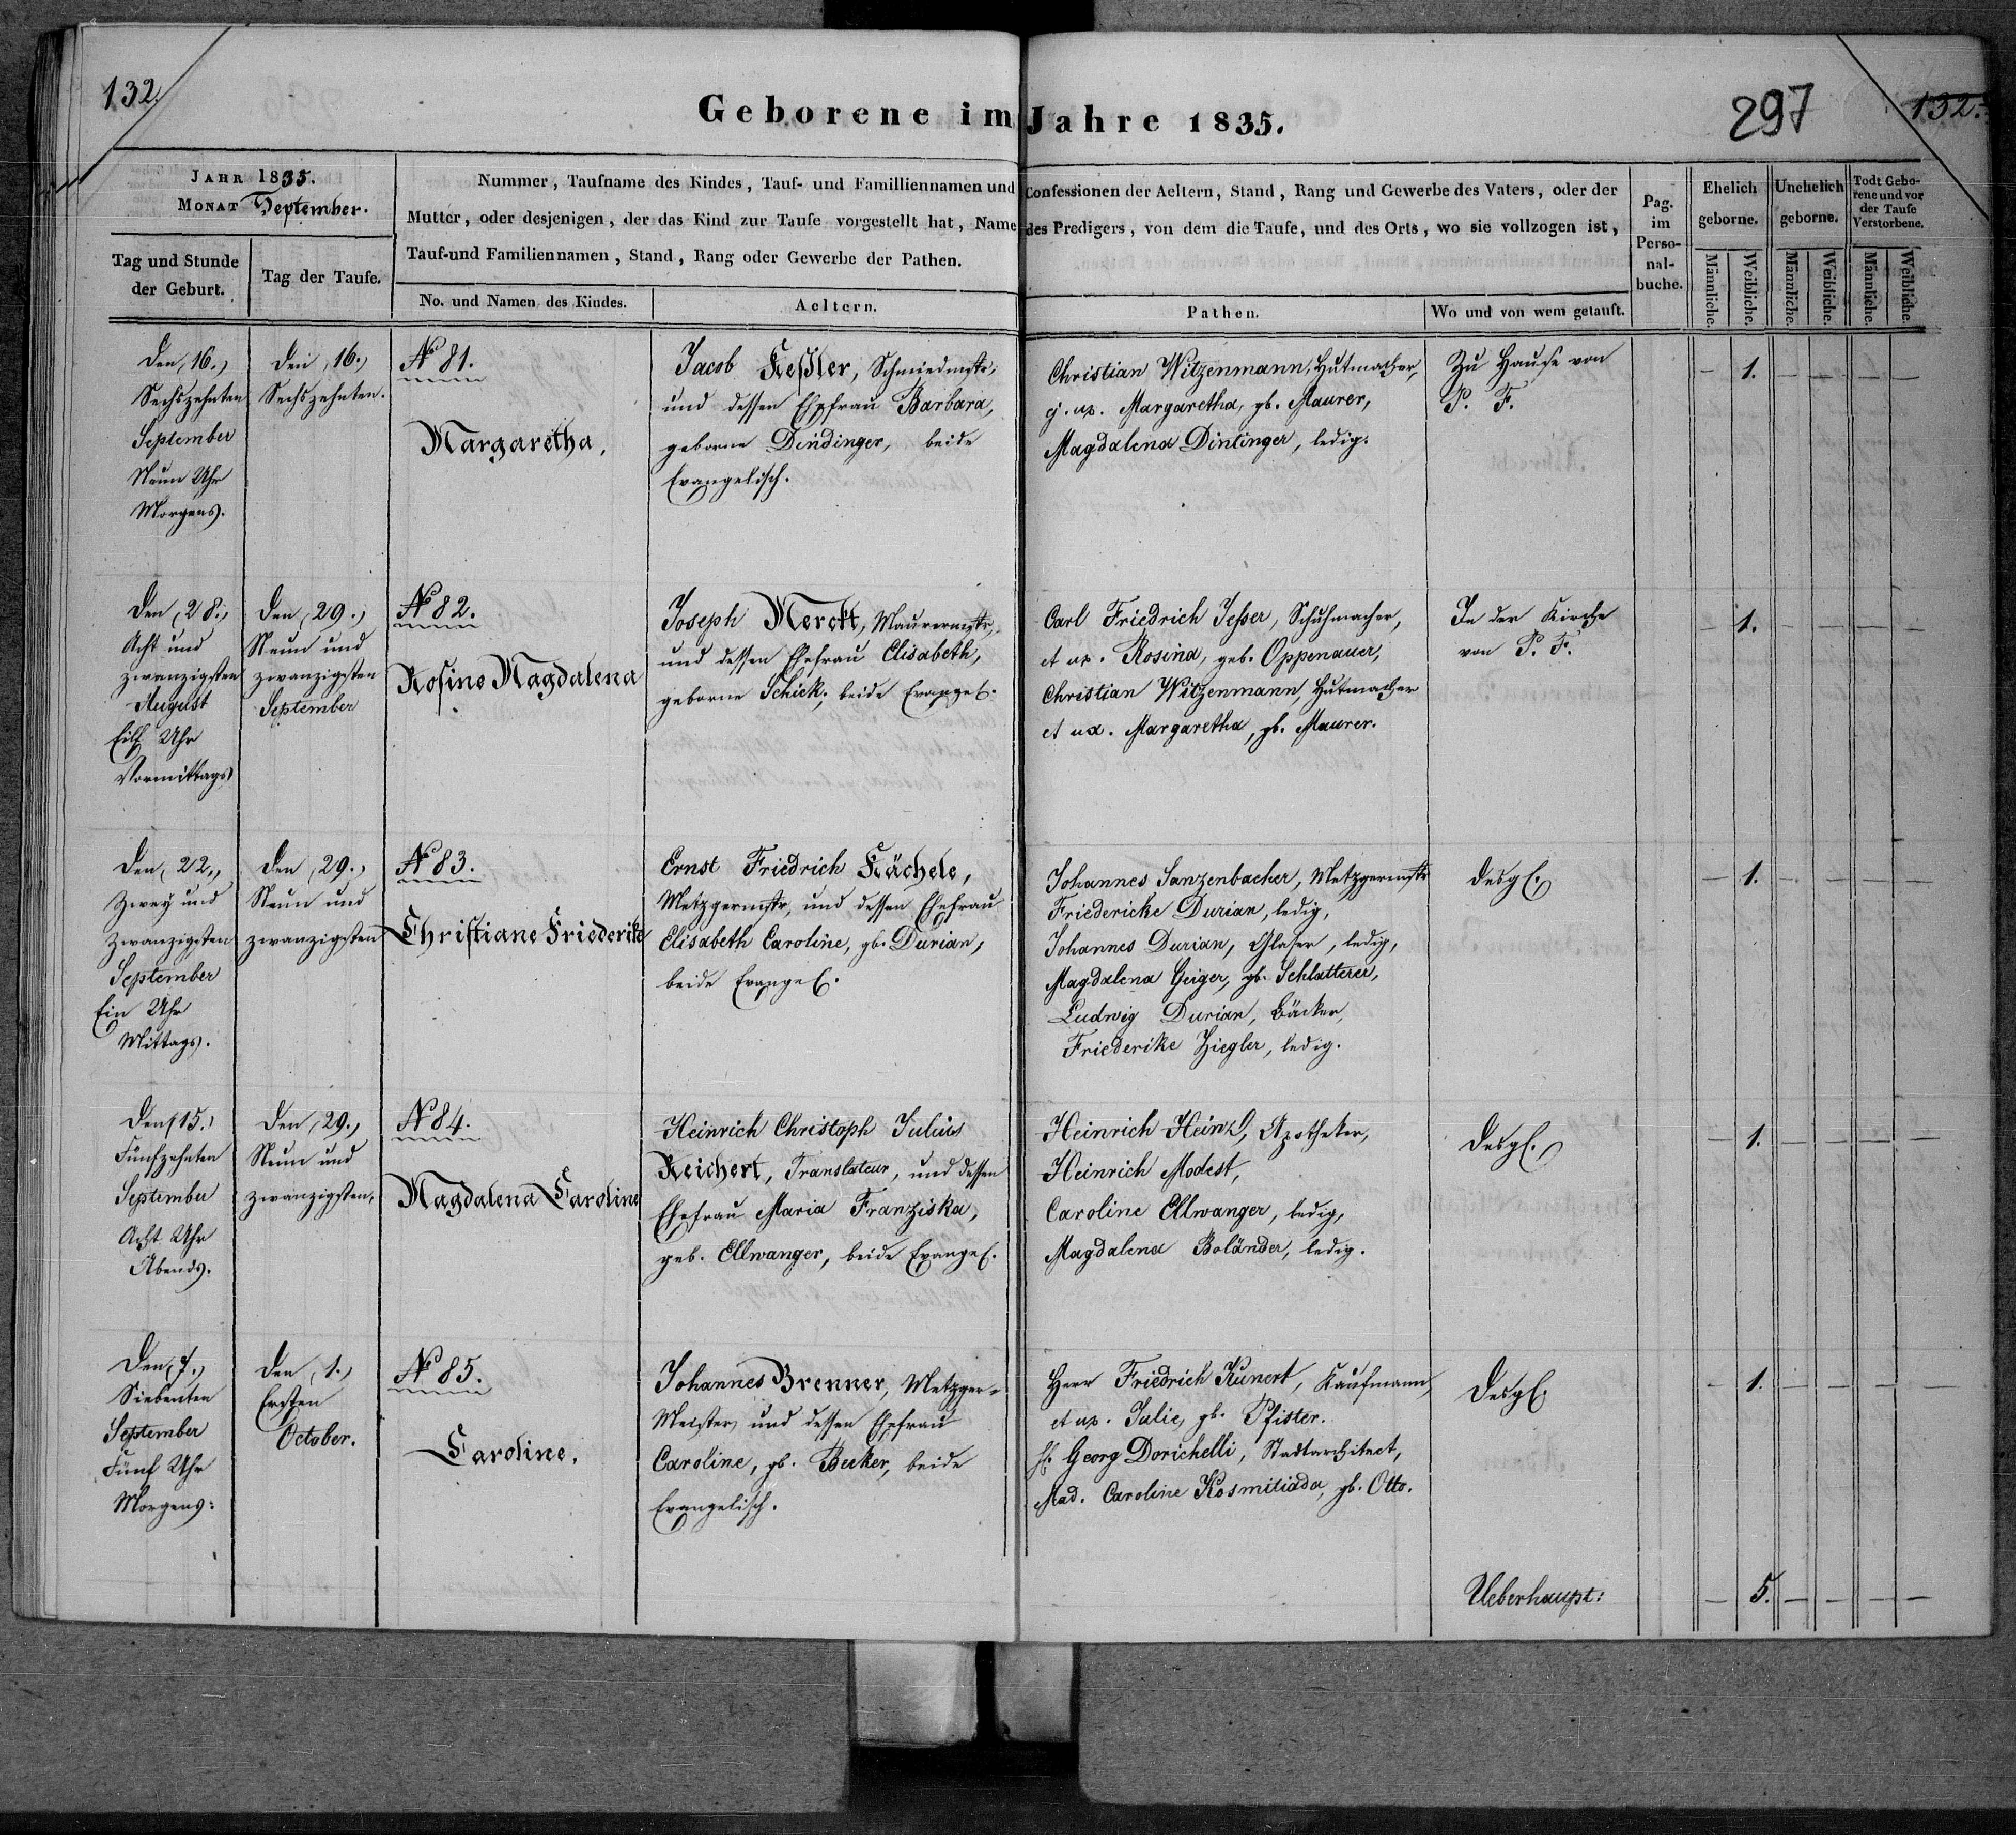 132.
Geborene im Jahre 1835.
297
132.
JAHR 1835.
MONAT September.
Nummer, Taufname des Kindes, Tauf- und Familliennamen und Confessionen der Aeltern, Stand, Rang und Gewerbe des Vaters, oder der
Mutter, oder desjenigen, der das Kind zur Taufe vorgestellt hat, Name des Predigers, von dem die Taufe, und des Orts, wo sie vollzogen ist,
Tauf-und Familiennamen, Stand, Rang oder Gewerbe der Pathen.
Tag und Stunde
der Geburt.
Tag der Taufe.
No. und Namen des Kindes.
Aeltern.
Pathen.
Wo und von wem getauft.
Pag.
im
Perso-
nal-
buche.
Ehelich
geborne.
Unehelich
geborne.
Todt Gebo-
rene und vor
der Taufe
Verstorbene.
Männliche.
Weibliche.
Männliche.
Weibliche.
Männliche.
Weibliche.
Den (16.)
Sechszehnten
September
Neun Uhr
Morgens.
Den (16.)
Sechszehnten.
No 81.
Margaretha.
Jacob Keßler, Schmiedmstr,
und dessen Ehefrau Barbara,
geborne Dindinger, beide
Evangelisch.
Christian Witzenmann, Hutmacher,
ej. ux. Margaretha, gb. Maurer,
Magdalena Dintinger, ledig.
Zu Hause von
P. F.
— 1. — — — —
Den (28.)
Acht und
zwanzigsten
August
Eilf Uhr
Vormittags
Den (29.)
Neun und
zwanzigsten
September
No 82.
Rosine Magdalena
Joseph Merckt, Maurermstr,
und dessen Ehefrau Elisabeth,
geborne Schick, beide Evangel.
Carl Friedrich Jesser, Schuhmacher,
et ux. Rosina, geb. Oppenauer,
Christian Witzenmann, Hutmacher
et ux. Margaretha, gb. Maurer.
In der Kirche
von P. F.
— 1. — — — —
Den (22.)
Zwey und
Zwanzigsten
September
Ein Uhr
Mittags.
Den (29.)
Neun und
zwanzigsten
No 83.
Christiane Friederike
Ernst Friedrich Kächele,
Metzgermstr, und dessen Ehefrau
Elisabeth Caroline, gb. Durian,
beide Evangel.
Johannes Sanzenbacher, Metzgermstr
Friedericke Durian, ledig,
Johannes Durian, Glaser, ledig,
Magdalena Geiger, gb. Schlatterer,
Ludwig Durian, Bäcker,
Friederike Ziegler, ledig.
desgl.
— 1. — — — —
Den (15.)
Fünfzehnten
September
Acht Uhr
Abends.
Den (29.)
Neun und
zwanzigsten.
No 84.
Magdalena Caroline
Heinrich Christoph Julius
Reichert, Translateur, und dessen
Ehefrau Maria Franziska,
geb. Ellwanger, beide Evangel.
Heinrich Heinzl, Apotheker,
Heinrich Modest,
Caroline Ellwanger, ledig,
Magdalena Boländer, ledig.
desgl.
— 1. — — — —
Den (7.)
Siebenten
September
Fünf Uhr
Morgens:
Den (1.)
Ersten
October.
No 85.
Caroline.
Johannes Brenner, Metzger-
Meister, und dessen Ehefrau
Caroline, gb. Becker, beide
Evangelisch.
Herr Friedrich Kunert, Kaufmann,
et ux. Julie, gb. Pfister.
H. Georg Dorichelli, Stadtarchitect,
Mad. Caroline Kosmitiada, gb. Otto.
desgl.
— 1. — — — —
Ueberhaupt:
— 5. — — — —